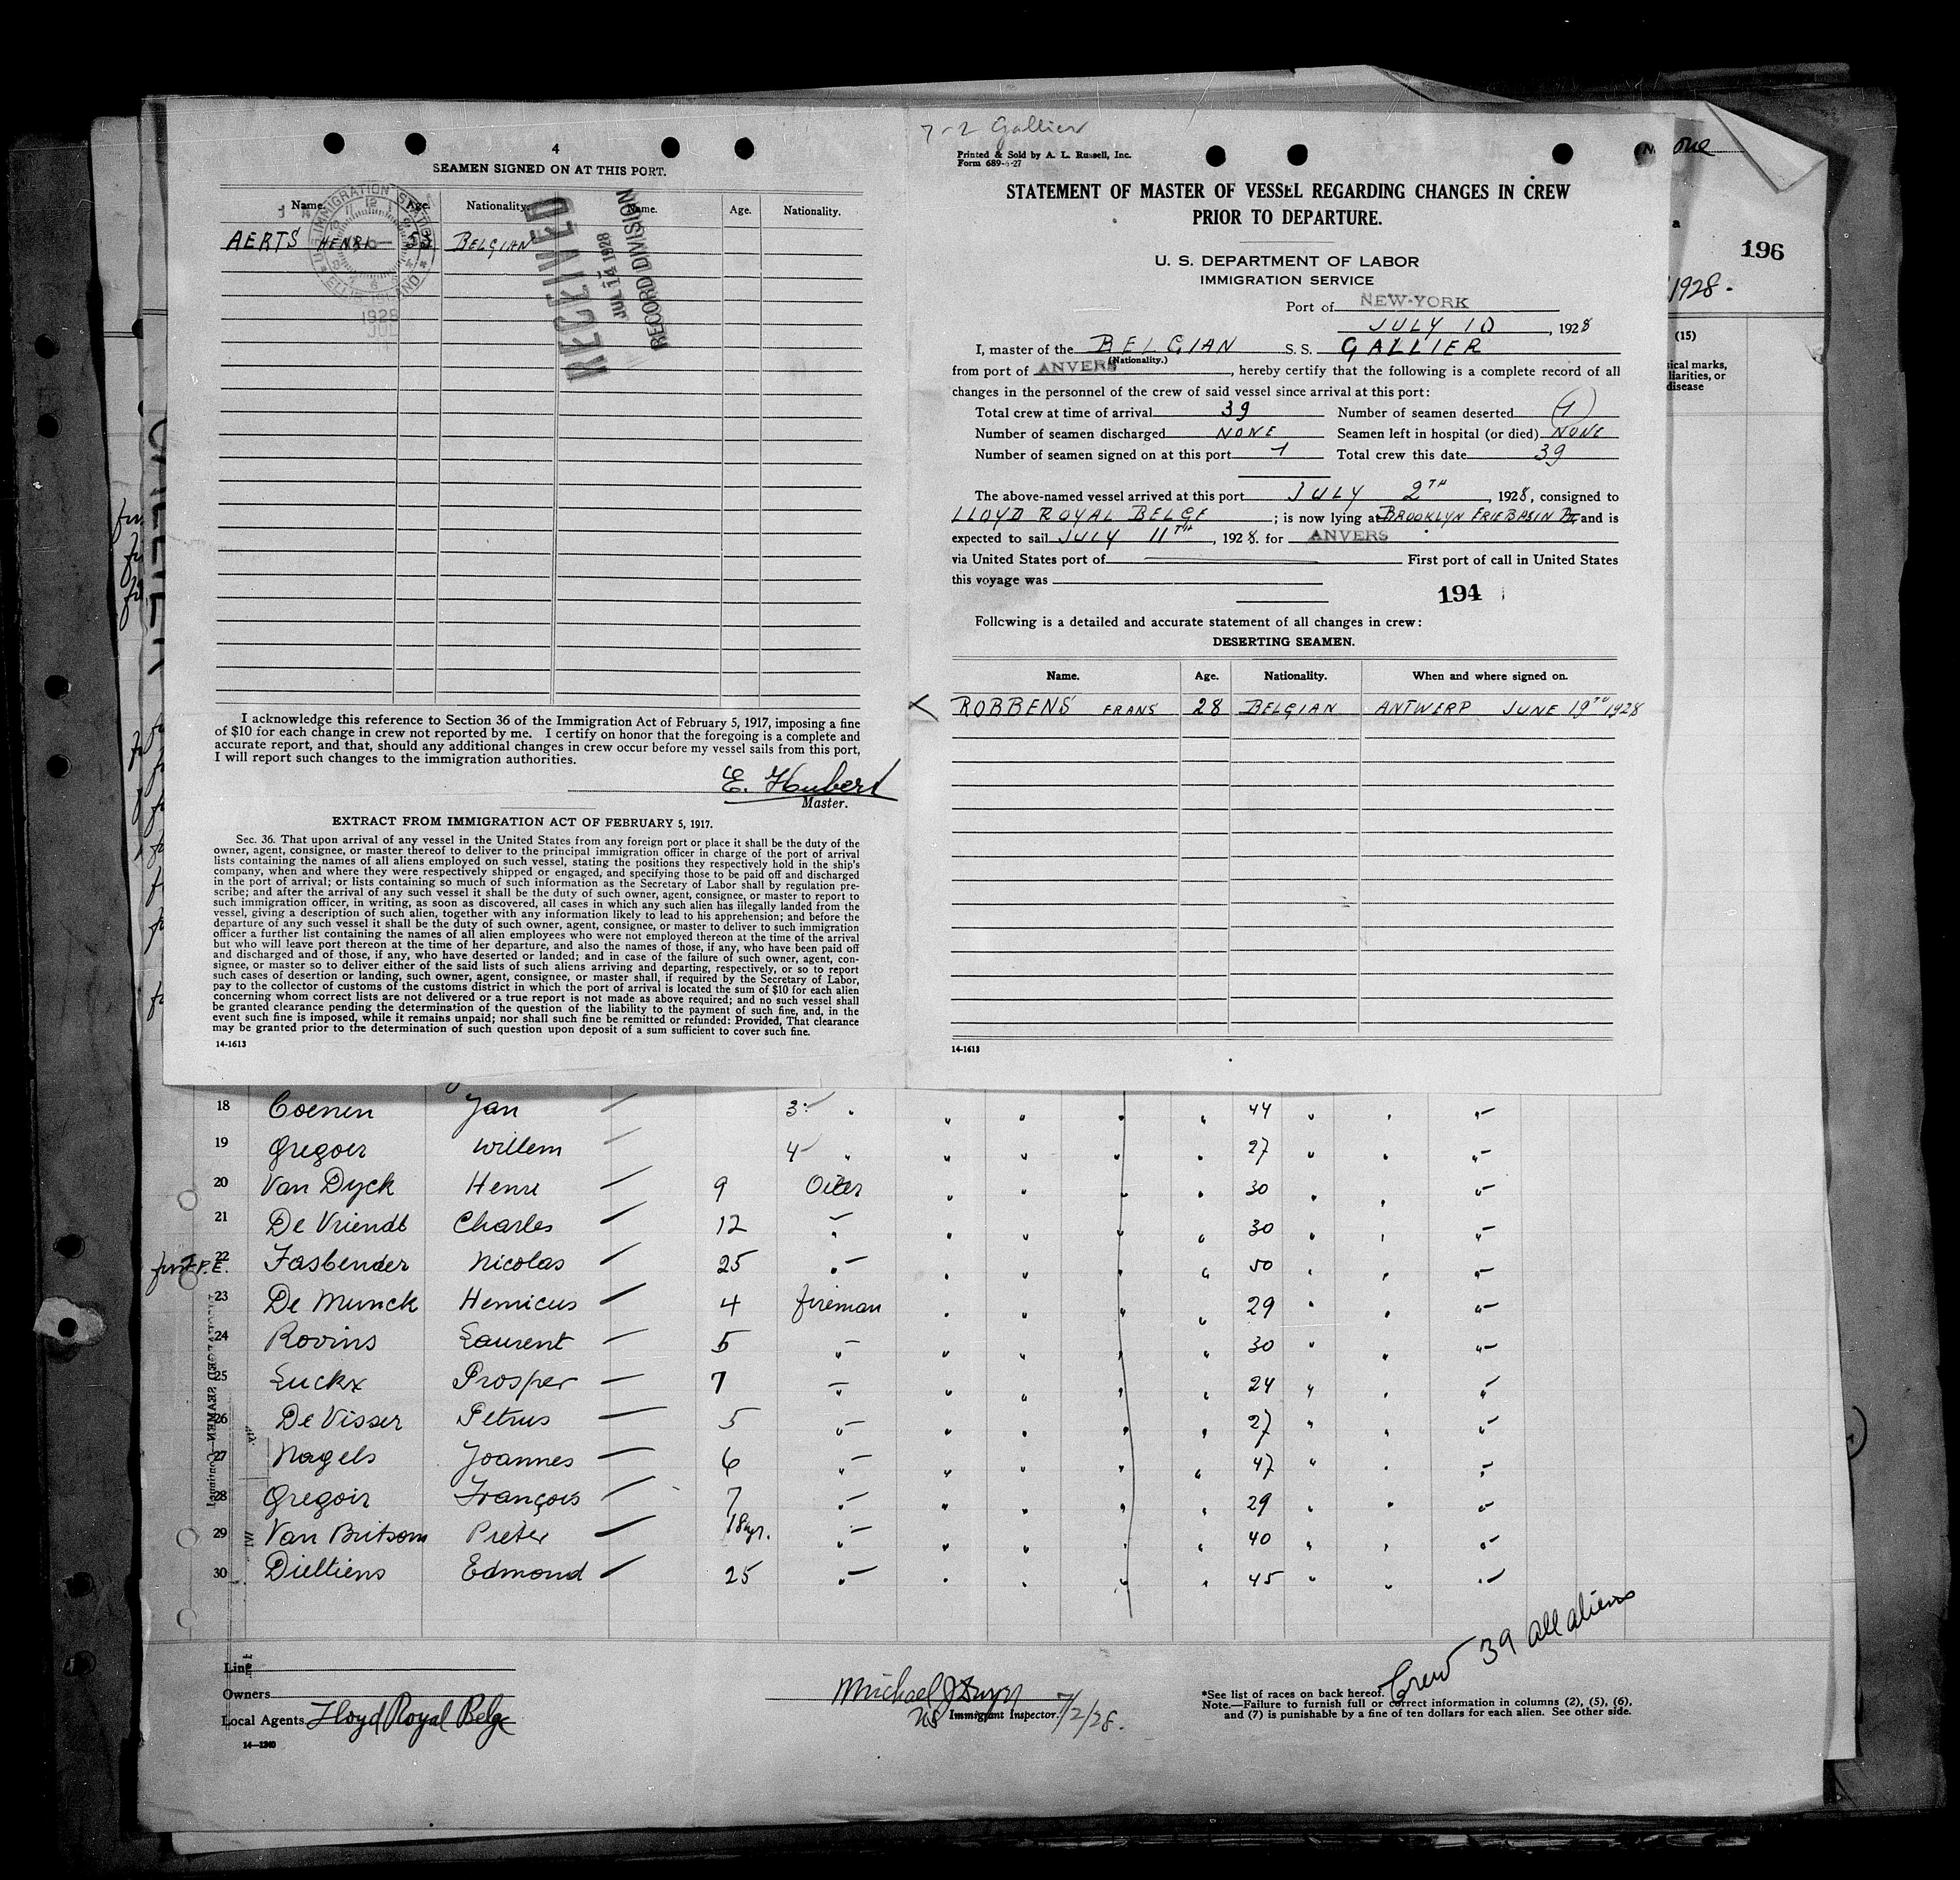 4
SEAMEN SIGNED ON AT THIS PORT.
Name. Age. Nationality. Name. Age. Nationality.
AERTS HENRI — 53 BELGIAN
U.S. IMMIGRATION STATION
ELLIS ISLAND
1928
JUL
RECEIVED
JUL 14 1928
RECORD DIVISION
I acknowledge this reference to Section 36 of the Immigration Act of February 5, 1917, imposing a fine
of $10 for each change in crew not reported by me. I certify on honor that the foregoing is a complete and
accurate report, and that, should any additional changes in crew occur before my vessel sails from this port,
I will report such changes to the immigration authorities.
E. Hubert
Master.
EXTRACT FROM IMMIGRATION ACT OF FEBRUARY 5, 1917.
Sec. 36. That upon arrival of any vessel in the United States from any foreign port or place it shall be the duty of the
owner, agent, consignee, or master thereof to deliver to the principal immigration officer in charge of the port of arrival
lists containing the names of all aliens employed on such vessel, stating the positions they respectively hold in the ship's
company, when and where they were respectively shipped or engaged, and specifying those to be paid off and discharged
in the port of arrival; or lists containing so much of such information as the Secretary of Labor shall by regulation pre-
scribe; and after the arrival of any such vessel it shall be the duty of such owner, agent, consignee, or master to report to
such immigration officer, in writing, as soon as discovered, all cases in which any such alien has illegally landed from the
vessel, giving a description of such alien, together with any information likely to lead to his apprehension; and before the
departure of any such vessel it shall be the duty of such owner, agent, consignee, or master to deliver to such immigration
officer a further list containing the names of all alien employees who were not employed thereon at the time of the arrival
but who will leave port thereon at the time of her departure, and also the names of those, if any, who have been paid off
and discharged and of those, if any, who have deserted or landed; and in case of the failure of such owner, agent, con-
signee, or master so to deliver either of the said lists of such aliens arriving and departing, respectively, or so to report
such cases of desertion or landing, such owner, agent, consignee, or master shall, if required by the Secretary of Labor,
pay to the collector of customs of the customs district in which the port of arrival is located the sum of $10 for each alien
concerning whom correct lists are not delivered or a true report is not made as above required; and no such vessel shall
be granted clearance pending the determination of the question of the liability to the payment of such fine, and, in the
event such fine is imposed, while it remains unpaid; nor shall such fine be remitted or refunded: Provided, That clearance
may be granted prior to the determination of such question upon deposit of a sum sufficient to cover such fine.
14-1613
7-2 Gallier
Printed & Sold by A. L. Russell, Inc.
Form 689-6-27
STATEMENT OF MASTER OF VESSEL REGARDING CHANGES IN CREW
PRIOR TO DEPARTURE.
U. S. DEPARTMENT OF LABOR
IMMIGRATION SERVICE
Port of NEW-YORK
JULY 10, 1928
I, master of the BELGIAN S. S. GALLIER
(Nationality.)
from port of ANVERS, hereby certify that the following is a complete record of all
changes in the personnel of the crew of said vessel since arrival at this port:
Total crew at time of arrival 39 Number of seamen deserted (1)
Number of seamen discharged NONE Seamen left in hospital (or died) NONE
Number of seamen signed on at this port 1 Total crew this date 39
The above-named vessel arrived at this port JULY 2TH, 1928, consigned to
LLOYD ROYAL BELGE; is now lying at BROOKLYN ERIE BASIN and is
expected to sail JULY 11TH, 1928. for ANVERS
via United States port of First port of call in United States
this voyage was
194
Following is a detailed and accurate statement of all changes in crew:
DESERTING SEAMEN.
Name. Age. Nationality. When and where signed on.
ROBBENS FRANS 28 BELGIAN ANTWERP JUNE 19TH 1928
14-1613
one
a
196
1928.
(15)
ical marks,
liarities, or
disease
18 Coenen Jan 3 " " " " " 44 " " "
19 Gregoir Willem 4 " " " " " 27 " " "
20 Van Dyck Henri 9 Oiler " " " " 30 " " "
21 De Vriendt Charles 12 " " " " " 30 " " "
22 Fasbender Nicolas 25 " " " " " 50 " " "
23 De Munck Henricus 4 fireman " " " " 29 " " "
24 Rovins Laurent 5 " " " " " 30 " " "
25 Luckx Prosper 7 " " " " " 24 " " "
26 De Visser Petrus 5 " " " " " 27 " " "
27 Nagels Joannes 6 " " " " " 47 " " "
28 Gregoir François 7 " " " " " 29 " " "
29 Van Britsom Pieter 18 yr. " " " " " 40 " " "
30 Dieltiens Edmond 25 " " " " " 45 " " "
Crew 39 all aliens
Line
Owners
Local Agents Lloyd Royal Belge
14-1240
Michael J Dwyer
Immigrant Inspector. 7/2/28.
*See list of races on back hereof.
Note.—Failure to furnish full or correct information in columns (2), (5), (6),
and (7) is punishable by a fine of ten dollars for each alien. See other side.